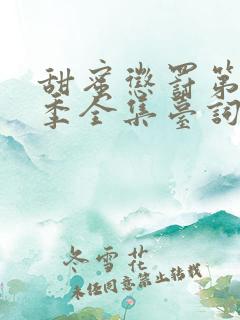 甜蜜懲罰第
季全集臺詞
冬雪花
未经同意禁止转载